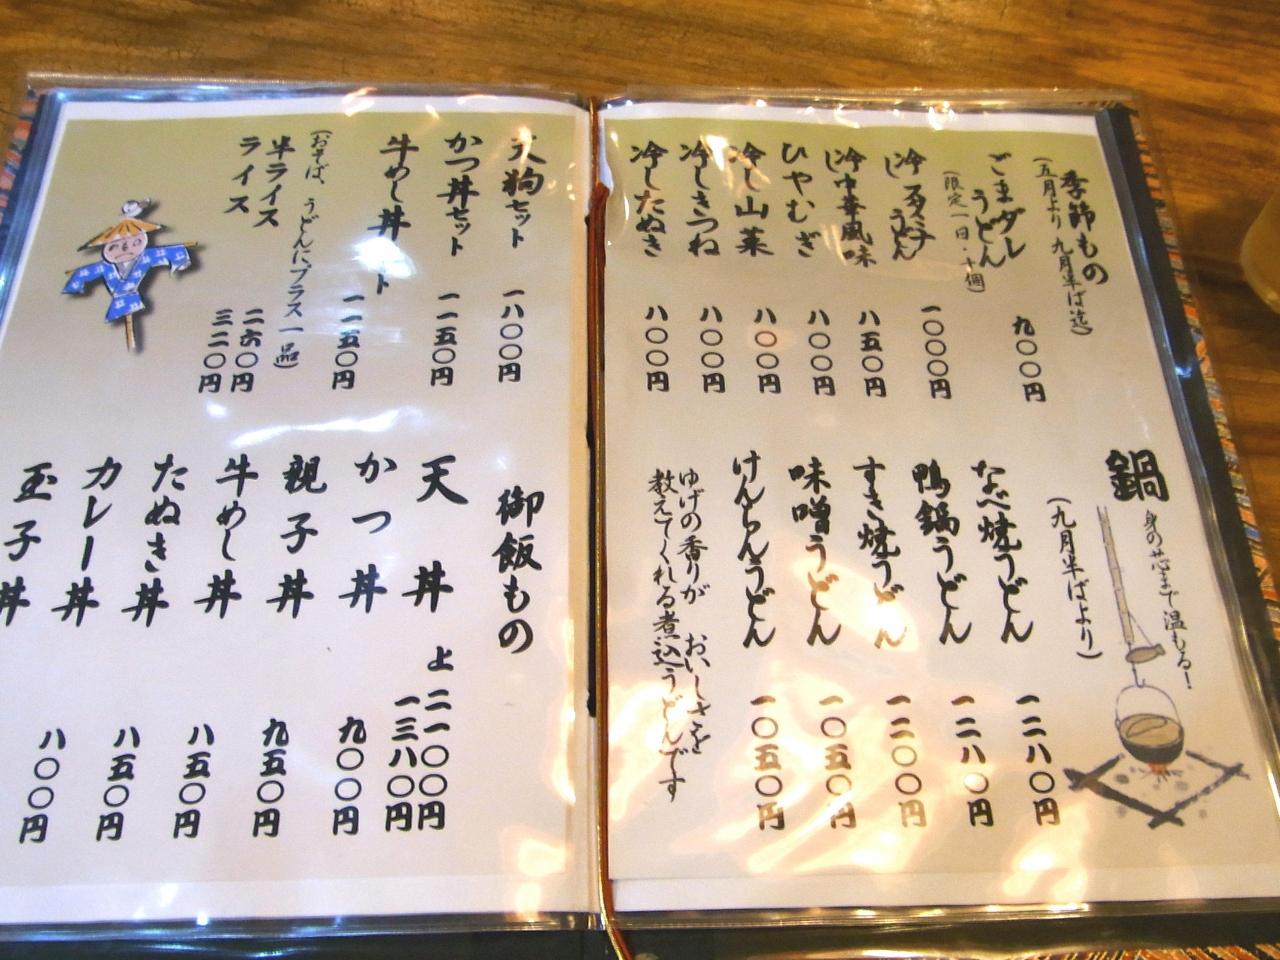 季節もの
(五月より 九月半ば迄)
ごまダレ
うどん
九〇〇円
(限定一日・十個)
うどん
一〇〇〇円
冷し
中華風味
八五〇円
ひやむぎ
八〇〇円
冷し山菜
八〇〇円
冷しきつね
八〇〇円
冷したぬき
八〇〇円
鍋
身の芯まで温もる!
(九月半ばより)
なべ焼うどん
一二八〇円
鴨鍋うどん
一二八〇円
すき焼うどん
一二〇〇円
味噌うどん
一〇五〇円
けんちんうどん
一〇五〇円
ゆげの香りが おいしさを
教えてくれる煮込うどんです
天狗セット
一八〇〇円
かつ丼セット
一一五〇円
牛めし丼
ト
一一五〇円
(おそば、うどんにプラス一品)
半ライス
二六〇円
ライス
三二〇円
御飯もの
天 丼
上 二一〇〇円
一三八〇円
かつ丼
九〇〇円
親子丼
九五〇円
牛めし丼
八五〇円
たぬき丼
八五〇円
カレー丼
八〇〇円
玉子丼